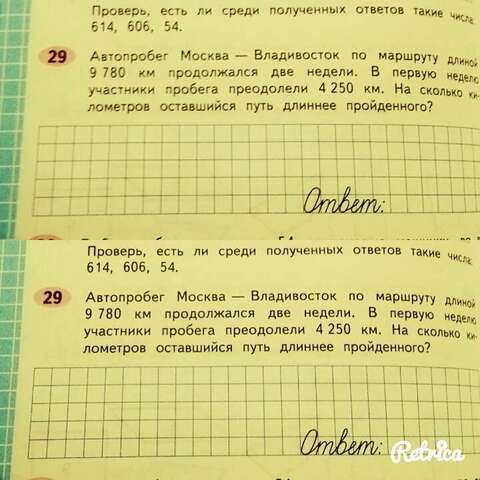 Проверь, есть ли среди полученных ответов такие числа:
614, 606, 54.
29 Автопробег Москва — Владивосток по маршруту длиной
9 780 км продолжался две недели. В первую неделю
участники пробега преодолели 4 250 км. На сколько ки-
лометров оставшийся путь длиннее пройденного?
Ответ:
Проверь, есть ли среди полученных ответов такие числа:
614, 606, 54.
29 Автопробег Москва — Владивосток по маршруту длиной
9 780 км продолжался две недели. В первую неделю
участники пробега преодолели 4 250 км. На сколько ки-
лометров оставшийся путь длиннее пройденного?
Ответ:
Retrica